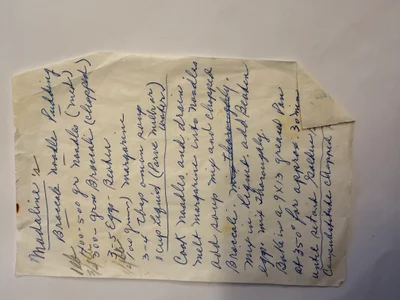 Madaline's
Broccoli Noodle Pudding
400-500 gr Noodles (med)
500 grm Broccoli (chopped)
3-5 eggs - Beaten
(120 grm) margarine
3-4 tbsp onion soup
1 cup liquid (Parve milk or
water)
Cook Noodles and drain
melt margarine into noodles
add soup mix and chopped
Broccoli. mix thoroughly.
mix in liquid. add Beaten
eggs. mix thoroughly.
Bake in a 9x13 greased Pan
at 350° for approx. 30 min
until set and golden
chopped